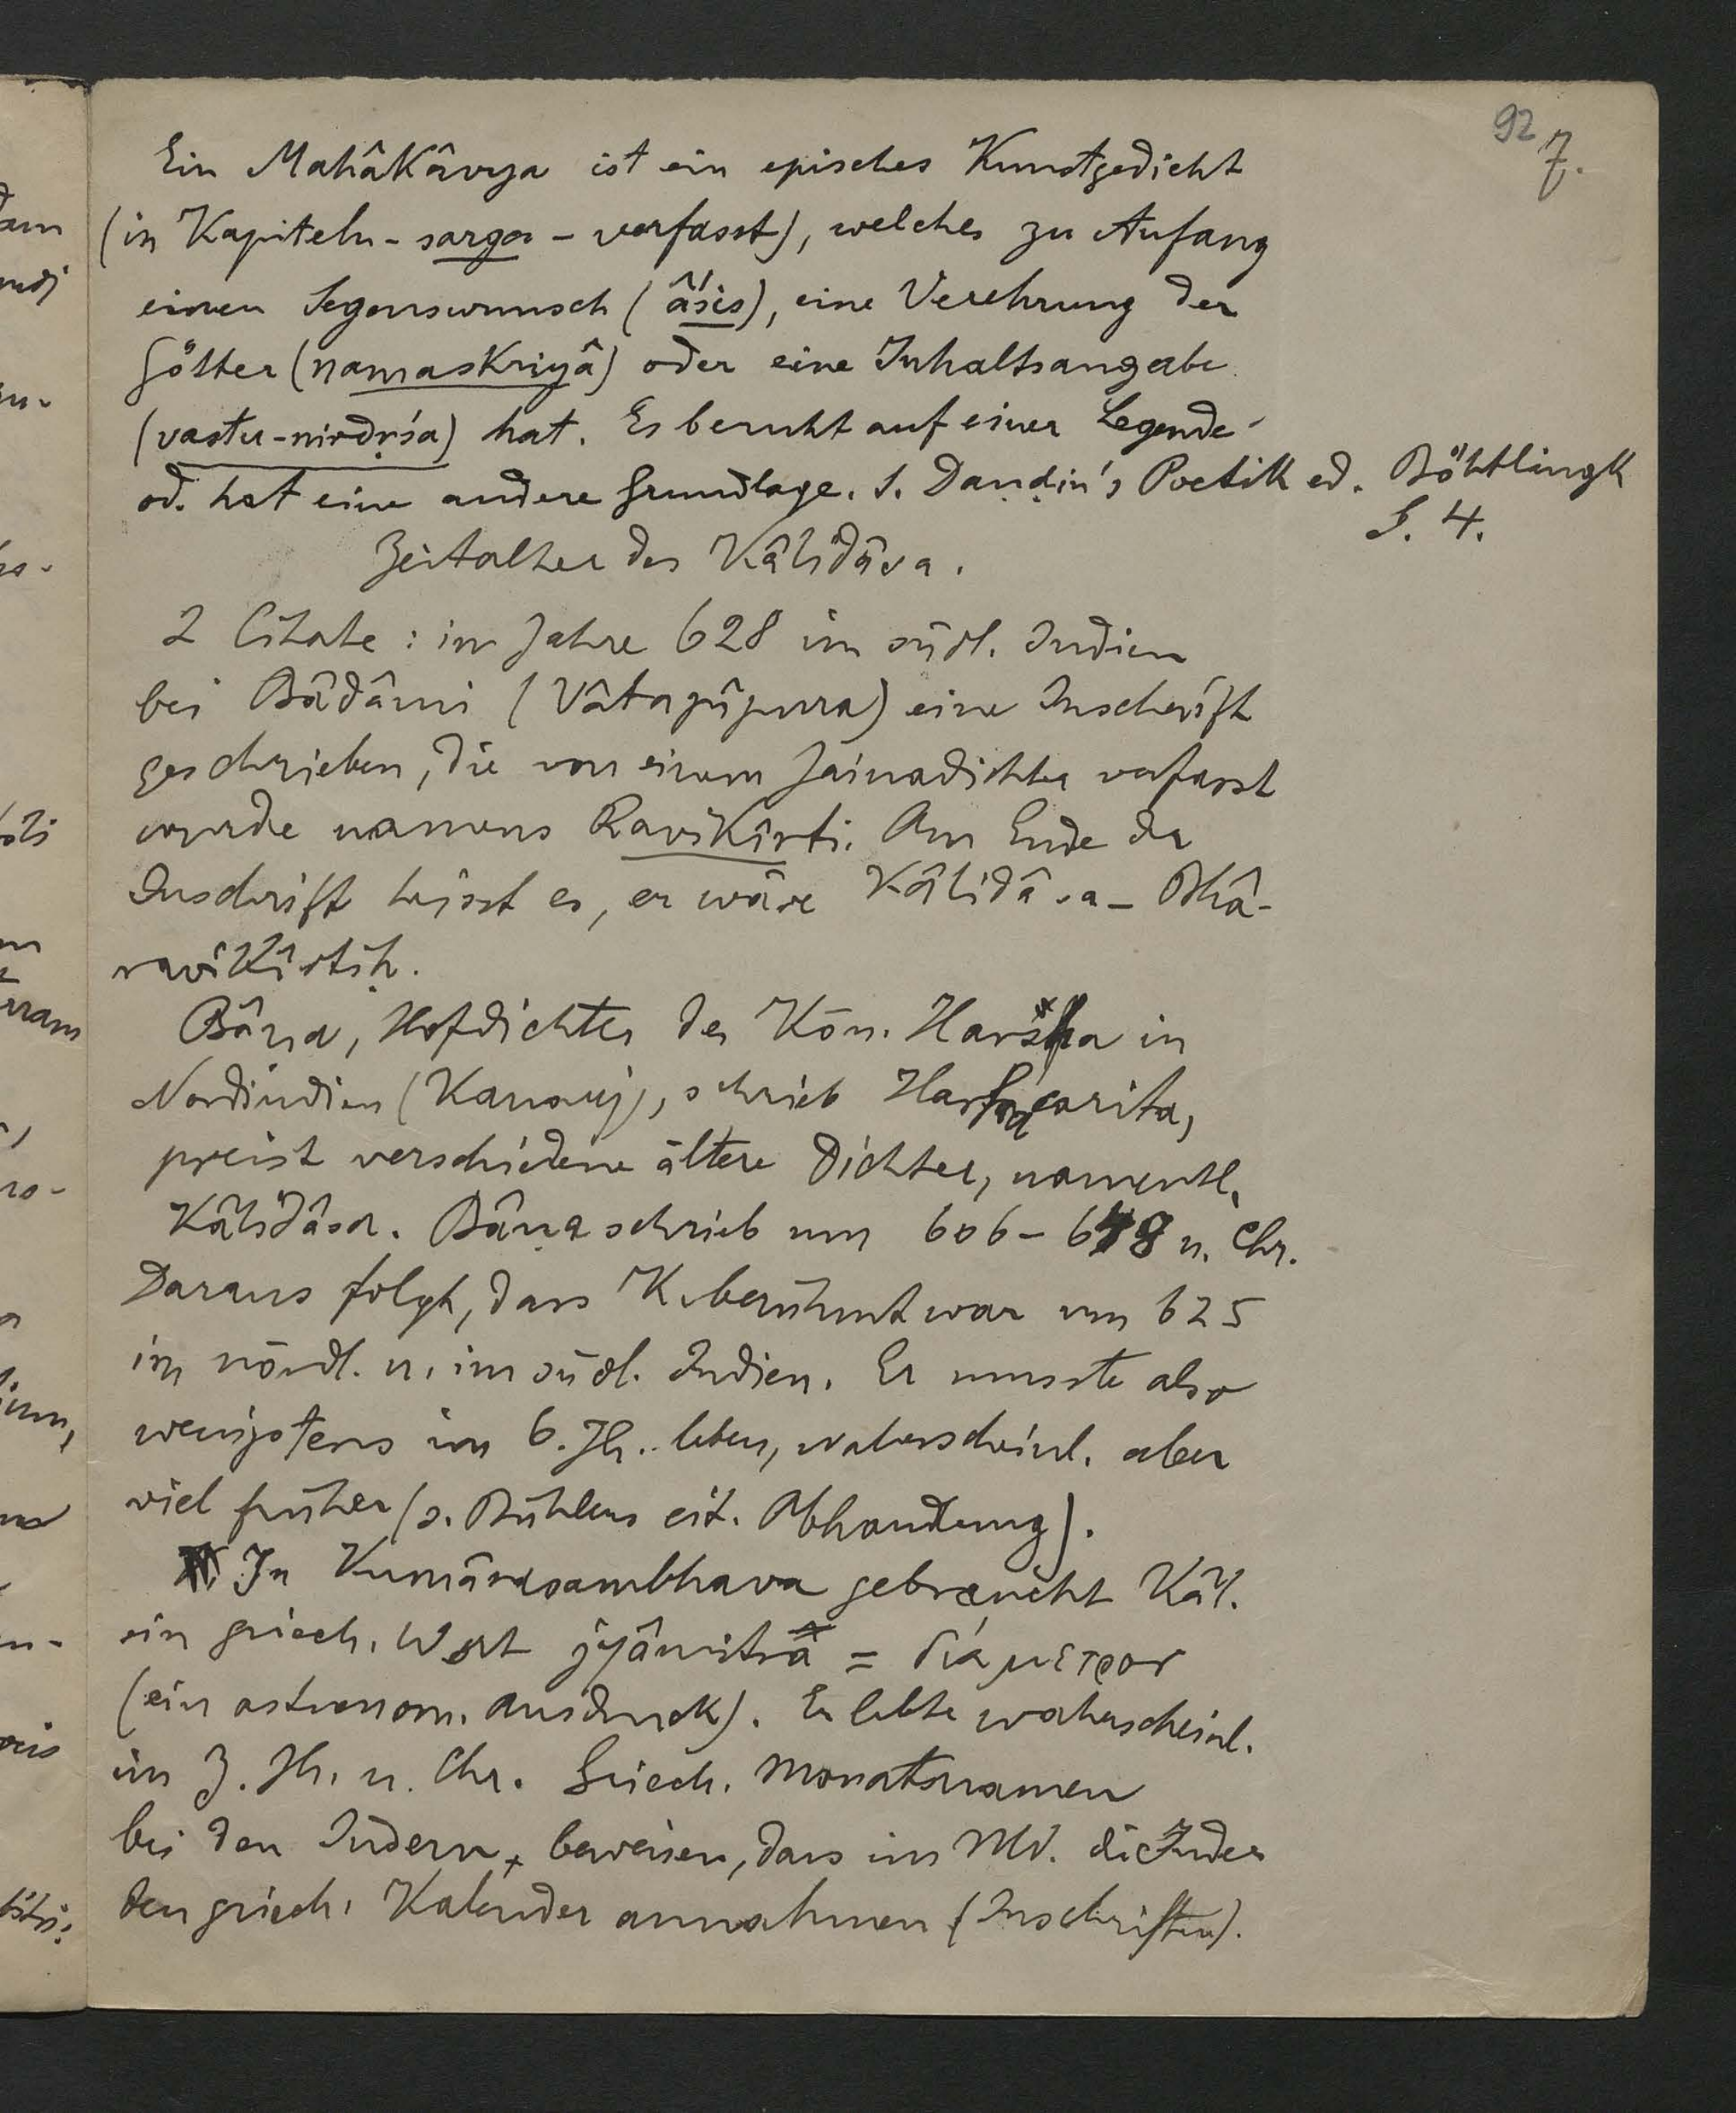 92
7.
Ein Mahâkâvya ist ein episches Kunstgedicht
(in Kapiteln - sarga - verfasst), welches zu Anfang
einen Segenswunsch (âśis), eine Verehrung der
Götter (namaskriyâ) oder eine Inhaltsangabe
(vastu-nirdṛśa) hat. Es beruht auf einer Legende
od. hat eine andere Grundlage. S. Daṇḍin's Poetik ed. Böhtlingk
S. 4.
Zeitalter des Kâlidâsa.
2 Citate: im Jahre 628 im südl. Indien
bei Bâdâmi (Vâtapîpura) eine Inschrift
geschrieben, die von einem Jainadichter verfasst
wurde namens Ravikîrti. Am Ende der
Inschrift heisst es, er wäre Kâlidâsa-Bhâ-
ravikîrtiḥ.
Bâṇa, Hofdichter des Kön. Harsha in
Nordindien (Kanauj), schrieb Harsacarita,
preist verschiedene ältere Dichter, namentl.
Kâlidâsa. Bâṇa schrieb um 606-648 n. Chr.
Daraus folgt, dass K. berühmt war um 625
im nördl. u. im südl. Indien. Er musste also
wenigstens im 6. Jh. leben, wahrscheinl. aber
viel früher (s. Bühlers cit. Abhandlung).
In Kumârasambhava gebraucht Kâl.
ein griech. Wort jyâmitra = διάμετρον
(ein astronom. Ausdruck). Er lebte wahrscheinl.
im 3. Jh. n. Chr. Griech. Monatsnamen
bei den Indern beweisen, dass im Md. die Inder
den griech. Kalender annahmen (Inschriften).